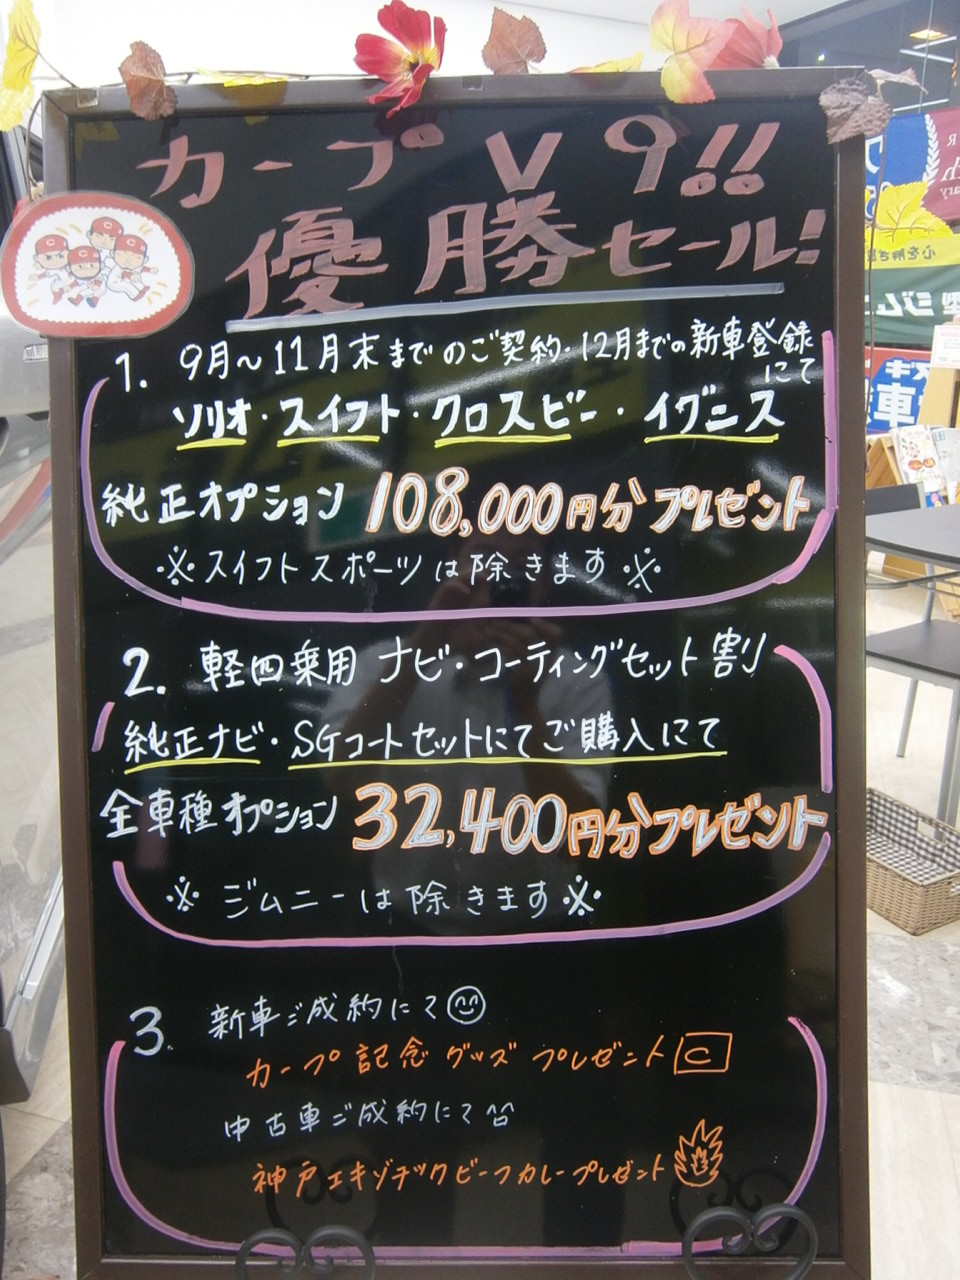 カープV9!!
優勝セール!
1. 9月～11月末までのご契約・12月までの新車登録
にて
ソリオ・スイフト・クロスビー・イグニス
純正オプション 108,000円分プレゼント
※スイフトスポーツは除きます※
2. 軽四乗用 ナビ・コーティングセット割
純正ナビ・SGコートセットにてご購入にて
全車種オプション 32,400円分プレゼント
※ジムニーは除きます※
3. 新車ご成約にて
カープ記念グッズ プレゼント C
中古車ご成約にて
神戸エキゾチックビーフカレープレゼント